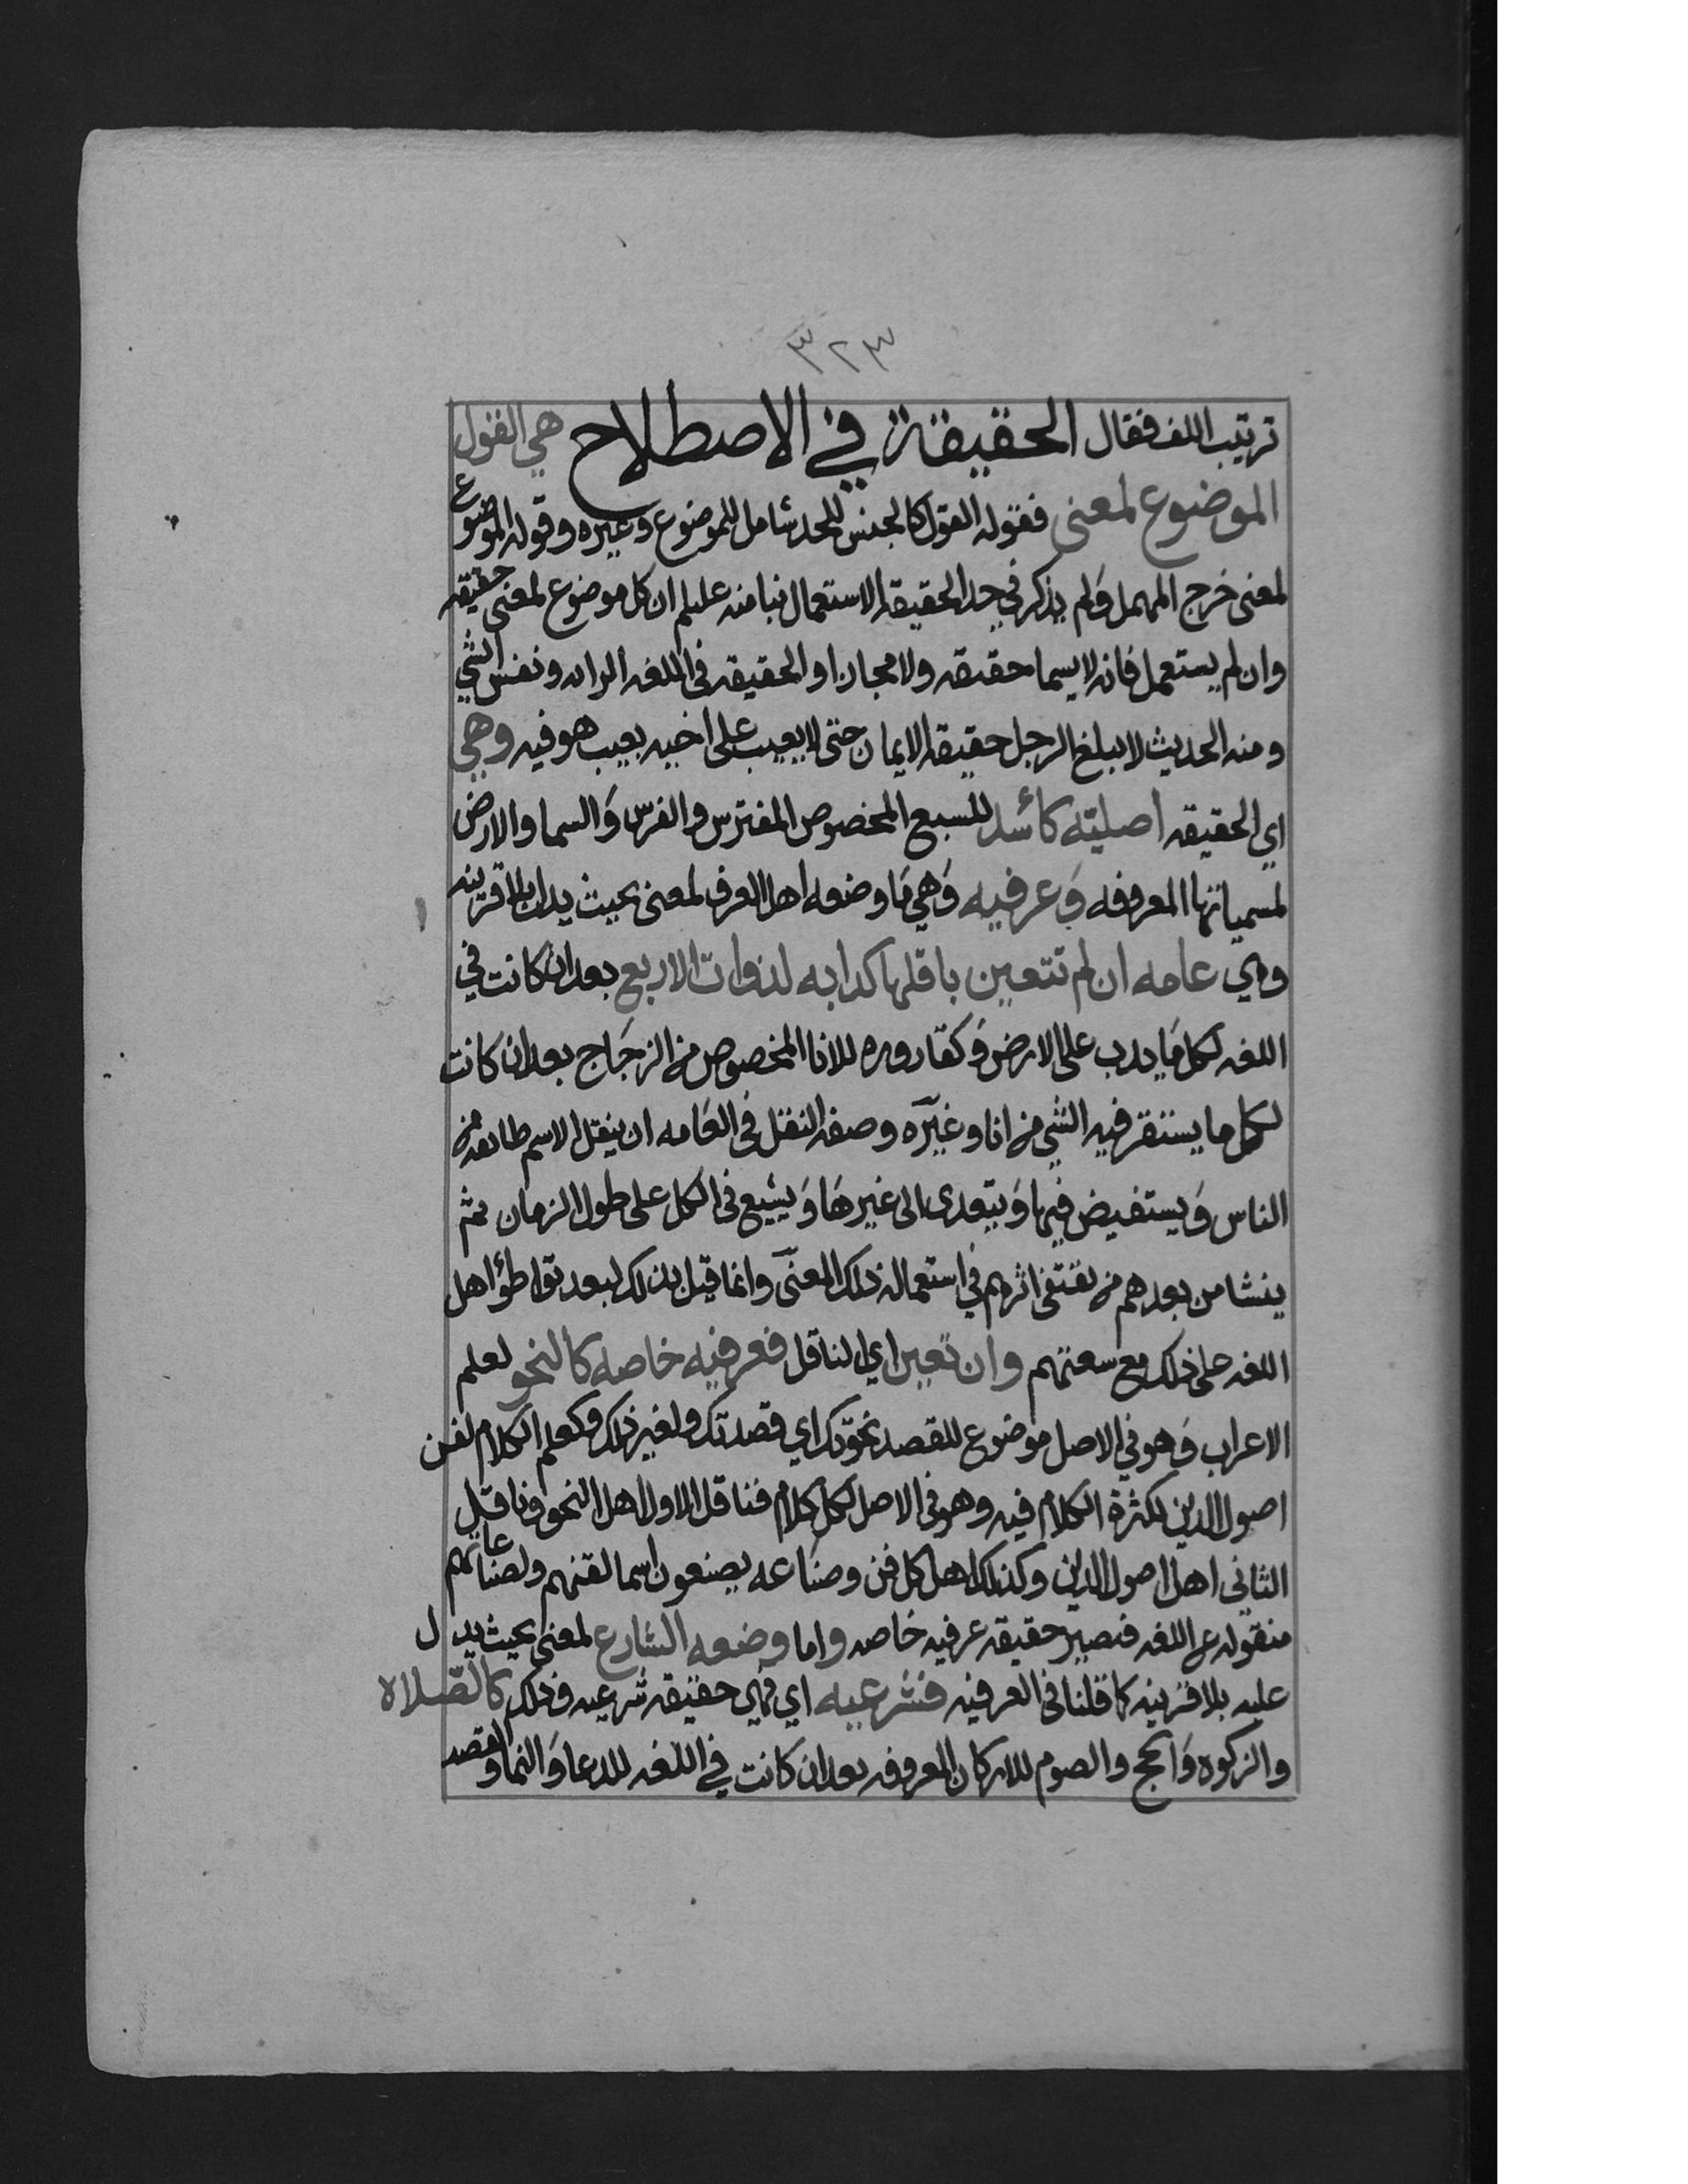 ٣٢٣
ترتيب اللف فقال الحقيقة في الاصطلاح هي القول
الموضوع لمعنى فقوله القول كالجنس للحد شامل للموضوع وغيره وقوله الموضوع
لمعنى خرج المهمل ولم يذكر في حد الحقيقة الاستعمال بنا منه على ان كل موضوع لمعنى حقيقه
وان لم يستعمل فانه لا يسما حقيقه ولا مجازا والحقيقه في اللغه الرايه ونفس الشي
ومنه الحديث لا يبلغ الرجل حقيقة الايمان حتى لا يعيب على اخيه بعيب هو فيه وهي
اي الحقيقه اصليّه كأسد للسبع المخصوص المفترس والفرس والسما والارض
لمسمياتها المعروفه وعرفيه وهي ما وضعه اهل العرف لمعنى بحيث يدل بلا قرينه
وهي عامه ان لم تتعين ناقلها كدابه لذوات الاربع بعد ان كانت في
اللغه لكل ما يدب على الارض وكقاروره للانا المخصوص من الزجاج بعد ان كانت
لكل ما يستقر فيه الشي من انا وغيره وصفة النقل في العامه ان ينقل الاسم طايفه من
الناس ويستفيض فيها ويتعدى الى غيرها ويشيع في الكل على طول الزمان ثم
ينشا من بعدهم من يقتفي اثرهم في استعماله ذلك المعنى وانما قيل بذلك لبعد تواطؤ اهل
اللغه على ذلك مع سعتهم وان تعين اي الناقل فعرفيه خاصه كالنحو لعلم
الاعراب وهو في الاصل موضوع للقصد نحوتك اي قصدتك ولغير ذلك وكعلم الكلام لفن
اصول الدين لكثرة الكلام فيه وهو في الاصل لكل كلام فناقل الاول اهل النحو وناقل
الثاني اهل اصول الدين وكذلك اهل كل فن وصناعه يصنعون اسما لفنهم ولصناعاتهم
منقوله عن اللغه فتصير حقيقه عرفيه خاصه واما وضعه الشارع لمعنى بحيث يدل
عليه بلا قرينه كما قلنا في العرفيه فشرعيه اي فهي حقيقه شرعيه وذلك كالصّلاة
والزكوه والحج والصوم للاركان المعروفه بعد ان كانت في اللغه للدعا والنما والقصد